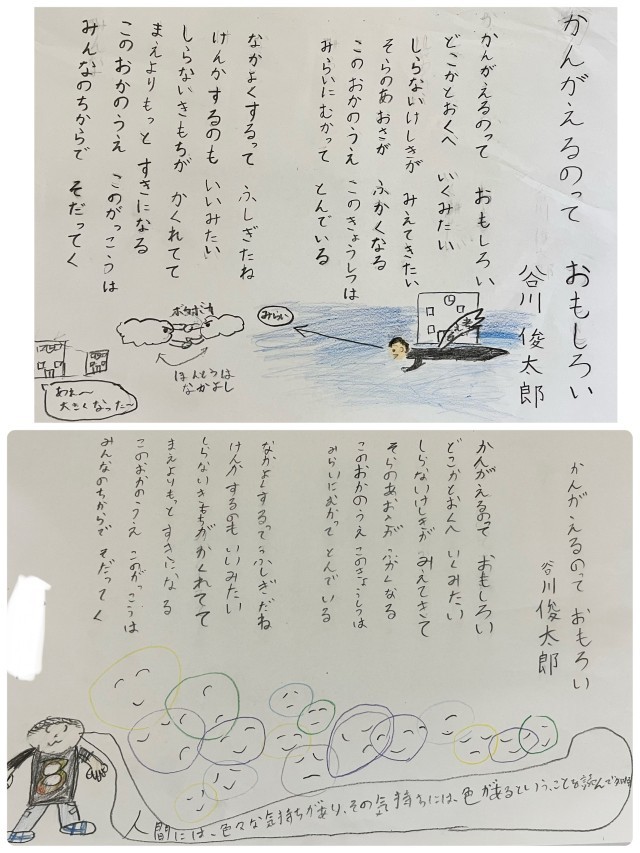 かんがえるのって おもしろい
谷川 俊太郎
かんがえるのって おもしろい
どこかとおくへ いくみたい
しらないけしきが みえてきたい
そらのあおさが ふかくなる
このおかのうえ このきょうしつは
みらいにむかって とんでいる
なかよくするって ふしぎだね
けんかするのも いいみたい
しらないきもちが かくれてて
まえよりもっと すきになる
このおかのうえ このがっこうは
みんなのちからで そだってく
みらい
ほんとうは
なかよし
大きくなった~
かんがえるのって おもろい
谷川 俊太郎
かんがえるのって おもしろい
どこかとおくへ いくみたい
しらないけしきが みえてきて
そらのあおさが ふかくなる
このおかのうえ このきょうしつは
みらいにむかって とんでいる
なかよくするって ふしぎだね
けんかするのも いいみたい
しらないきもちが かくれてて
まえよりもっと すきになる
このおかのうえ このがっこうは
みんなのちからで そだってく
8
人間には、色々な気持ちがあり、その気持ちには、色があるという、ことを読んで